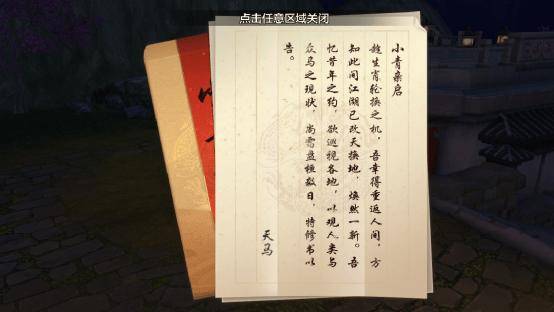 点击任意区域关闭
小青亲启
趁生肖轮换之机，吾幸得重返人间，方
知此间江湖已改天换地，焕然一新。吾
忆昔年之约，欲巡视各地，以观人类与
众马之现状，尚需盘桓数日，特修书以
告。
天马